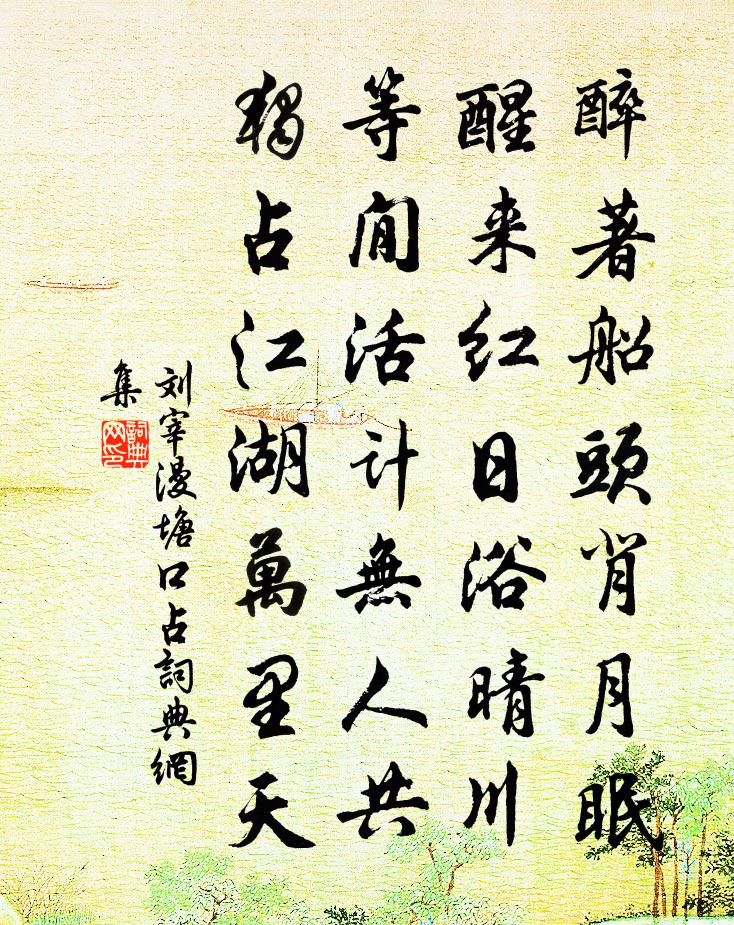 醉著船頭背月眠
醒来红日浴晴川
等閒活计無人共
獨占江湖萬里天
刘宰漫塘口占詞典網
集
詞典
网印